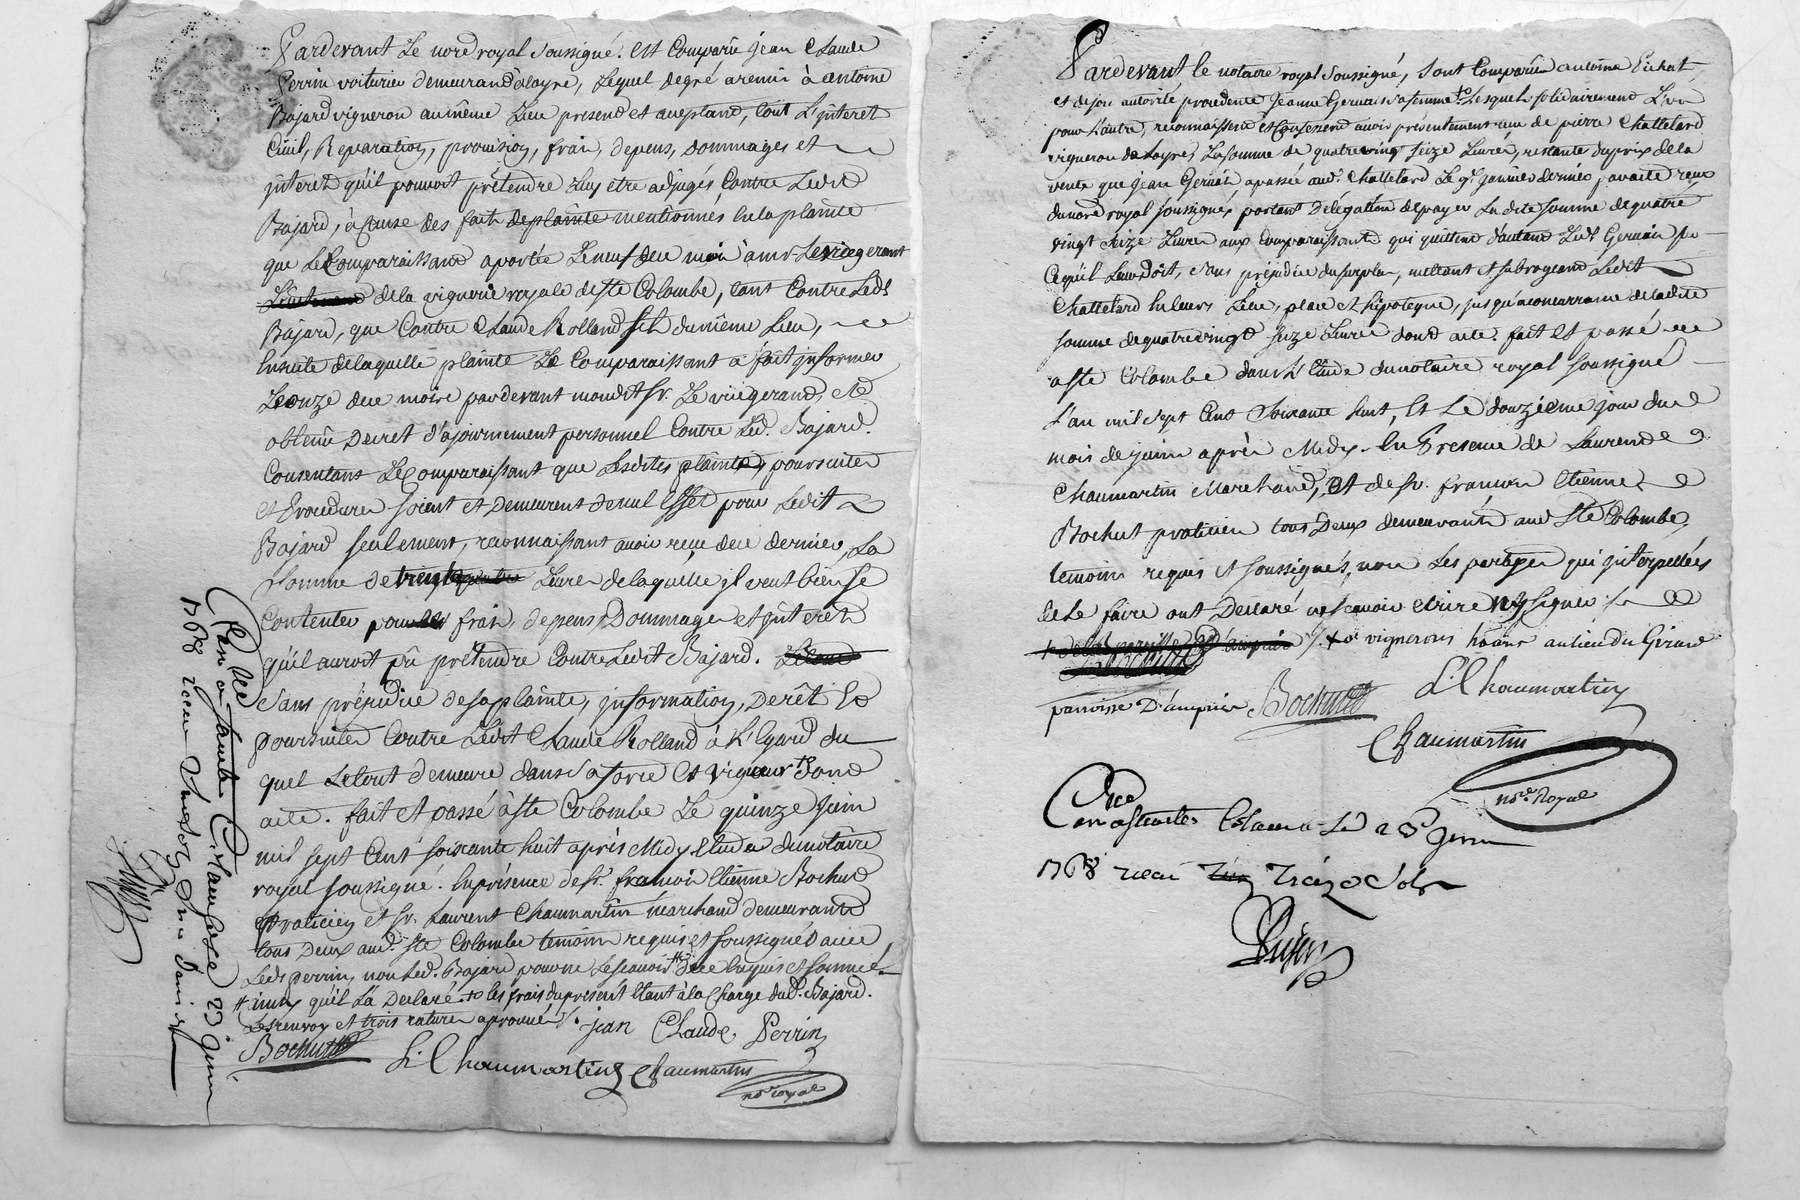 Pardevant Le nore royal soussigné. est Comparu jean Claude
Perrin voiturier demeurand aloyre, Lequel degré a remis à antoine
Bajard vigneron au même Lieu present et aceptand, tout L'interet
Civil, Reparation, provision, frais, depens, dommages et
jnteret qu'il pouvoit prétendre Luy etre adjugés Contre Ledit
Bajard, à Cause des fait de plainte mentionnés en la plainte
que Le Comparaissand a portée Le neuf du mois à mr. Le vicegerant
de la viguerie royale de ste Colombe, tant Contre Ledt
Bajard, que Contre Claude Rolland fils du même Lieu,
Ensuite de laquelle plainte Le Comparaissant a fait jnformer
Le onze du moire pardevant mondit sr. Le vicegerand, et
obtenu Decret d'ajournement personnel Contre Led. Bajard.
Consentant Le Comparaissant que Lesdites plainte, poursuites
et Procedures soient et Demeurent de nul Effet pour Ledit
Bajard seulement, reconnaissant avoir reçu de ce dernier, La
somme de Livres de laquelle jl veut bien se
Contenter pour les frais, depens Dommages et jnterêt
qu'il auroit pû prétendre Contre Ledit Bajard.
sans préjudice de sa plainte, jnformation, Decrêt Et
poursuites Contre Ledit Claude Rolland à L'Egard du
quel Le tout demeure dans sa force et vigueur Dont
acte. fait et passé à ste Colombe Le quinze juin
mil sept Cent soixante huit après Midy Etude du notaire
royal soussigné. En présence de sr. francois Etienne Bochut
praticien et sr. Laurent Chaumartin marchand demeurants
tous Deux aud. ste Colombe temoins requis et soussignés avec
Ledt perrin, non Led. Bajard pour ne Le scavoir de ce Enquis et sommé
qu'il L'a Declaré. les frais du present Etant à la Charge dud. Bajard.
Les renvoy et trois ratures aprouvés
jean Claude Perrin
Bochut L. Chaumartin Chaumartin
nore royal
Con lée a Sainte Colombe Le 23 juin
1768 recu
Pardevant le notaire royal soussigné, sont Comparus antoine Pichat,
et de son autorité procedente Jeanne Germain sa femme Lesquels solidairement L'un
pour L'autre, reconnaissent et Confessent avoir présentement reçu de pierre Chattelard
vigneron de Loyre, La somme de quatre vingt seize Livres, restante du prix de la
vente que jean Germain a passée aud. Chattelard Le 9e janvier dernier par acte reçu
du nore royal soussigné, portant Délégation de payer La dite somme de quatre
vingt seize Livres aux Comparaissants qui quittent d'autant Ledt Germain sur
Ce qu'il Leur doit, sans préjudice du surplus, mettant et subrogeand Ledit
Chattelard En Leurs Lieu, place et hipoteque, jusqu'a concurrance de la dite
somme de quatre vingt seize Livres dont acte. fait et passé
a Ste Colombe dans L'Etude du notaire royal soussigné
L'an mil sept Cent Soixante huit, Et Le douzième jour du
mois de juin après Midy. En Presence de Laurent
Chaumartin Marchand, Et de sr. francois Etienne
Bochut praticien tous Deux demeurants aud Ste Colombe,
temoins requis et soussignés, non Les parties qui jnterpellées
de Le faire ont Déclaré ne scavoir ecrire ny signer
vignerons habitans au lieu du Giraud
paroisse D'ampuis. Bochut L. Chaumartin
Chaumartin
nore. Royal
Con lée
a Sainte Colombe Le 23 juin
1768 recu Treize sols